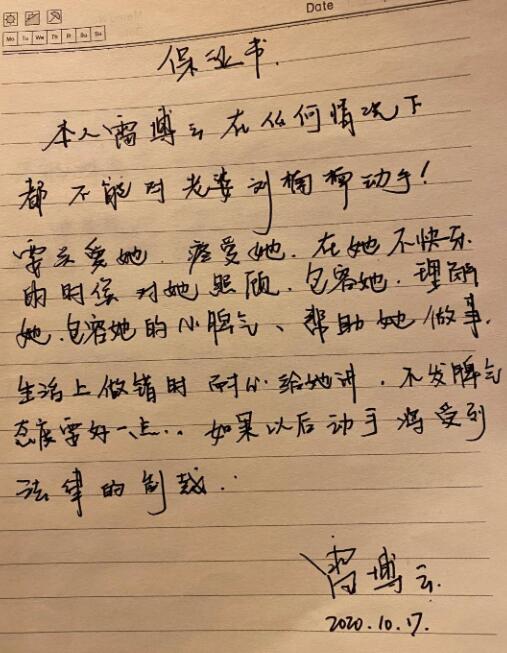 Date
Mo Tu We Th Fr Sa Su
保证书.
本人雷博云在任何情况下
都不能对老婆刘楠楠动手!
要关爱她.疼爱她.在她不快乐
的时候对她照顾.包容她.理解
她.包容她的小脾气、帮助她做事.
生活上做错时耐心给她讲.不发脾气
态度要好一点..如果以后动手将受到
法律的制裁..
雷博云.
2020.10.17.